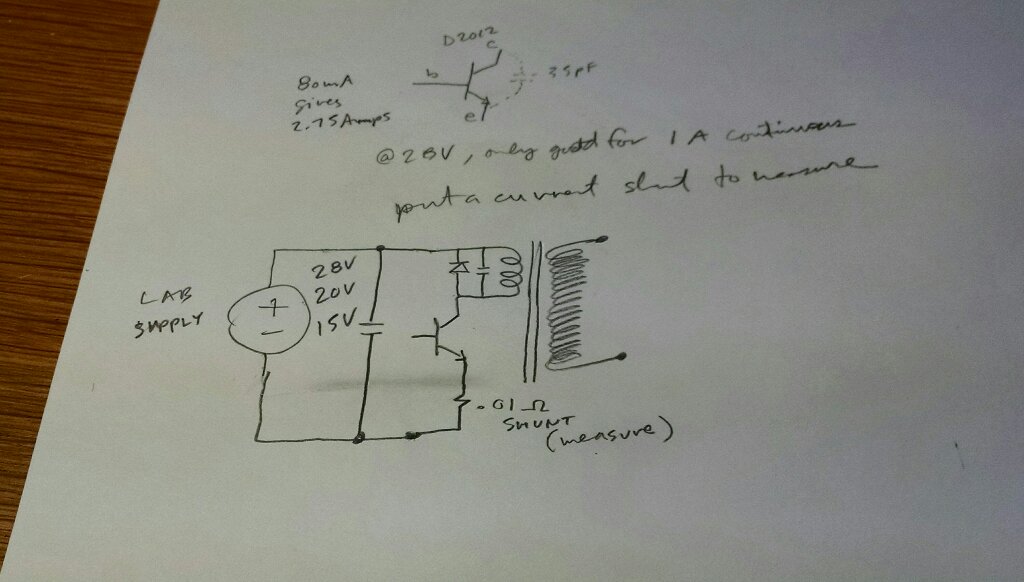 D2012
c
b
35pF
e
80mA
gives
2.75Amps
@ 28V, only good for 1 A continuous
put a current shunt to measure
LAB
SUPPLY
+
−
28V
20V
15V
.01 Ω
SHUNT
(measure)